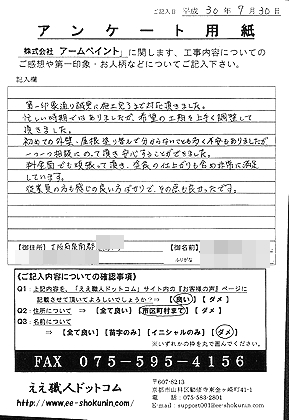 ご記入日 平成 30年 9月30日
アンケート用紙
株式会社 アームペイント」に関します、工事内容についての
ご感想や第一印象・お人柄などについてご記入下さい。
記入欄
第一印象通り誠実に施工完了まで対応頂きました。
忙しい時期ではありましたが、希望の工期を上手く調整して
頂きました。
初めての外壁、屋根塗り替えで分からないことも多く不安もありましたが
一つ一つ相談にのって頂き安心することができました。
料金面でも頑張って頂き、全長の仕上がりも含め非常に満足
しています。
従業員の方も感じの良い方ばかりで、その点も良かったです。
【御住所】
【御名前】
ふりがな
《ご記入内容についての確認事項》
Q1:上記内容を、「ええ職人ドットコム」サイト内の『お客様の声』ページに
記載させて頂いてよろしいでしょうか?⇒【 良い 】【 ダメ 】
Q2:住所について ⇒ 【全て良い】【市区町村まで】【 ダメ 】
Q3:名前について
⇒【全て良い】【苗字のみ】【イニシャルのみ】【 ダメ 】
※いずれかの枠を丸で囲んでください。
FAX 075-595-4156
ええ職人ドットコム
http://www.ee-shokunin.com/
〒607-8213
京都市山科区勧修寺東金ヶ崎町41-1
電話:075-583-2801
E-mail:support001@ee-shokunin.com